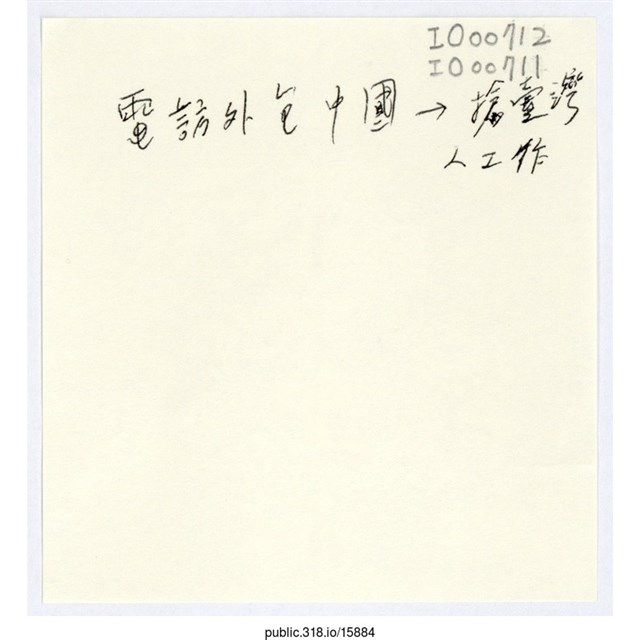 IO00712
IO00711
電訪外包中國→搶臺灣
人工作
public.318.io/15884